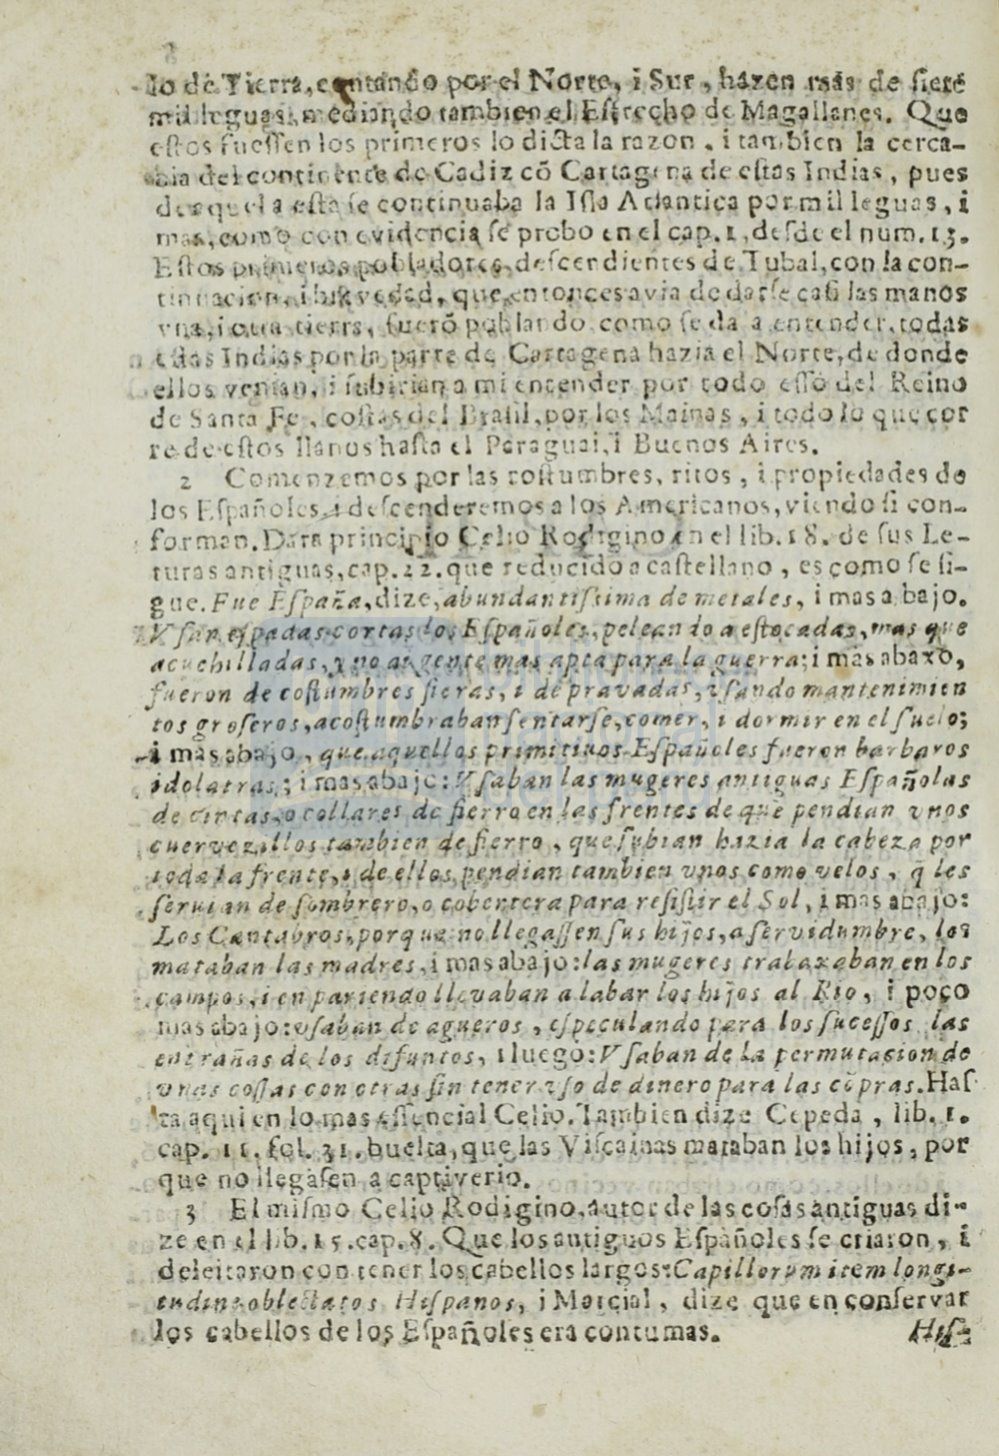 lo de Tierra, contando por el Norte, i Sur, hazen más de siete
mil leguas, mediando tambien el Estrecho de Magallanes. Que
estos fuessen los primeros lo dicta la razon, i tambien la cerca-
nia del continente de Cadiz cõ Cartagena de estas Indias, pues
desde aquel a esta se continuaba la Isla Atlantica por mil leguas, i
mas, como con evidencia se probo en el cap. 1, desde el num. 13.
Estos primeros pobladores, descendientes de Tubal, con la con-
tinuacion, i brevedad, que entonces avia de darse casi las manos
vna, i otra tierra, fuerõ poblando como se da a entender, todas
estas Indias por la parte de Cartagena hazia el Norte, de donde
ellos venian, i subirian a mi entender por todo esso del Reino
de Santa Fe, costas del Brasil, por los Mainas, i todo lo que cor
re de estos llanos hasta el Paraguai, i Buenos Aires.
2 Comenzemos por las costumbres, ritos, i propiedades de
los Españoles, i descenderemos a los Americanos, viendo si con-
forman. Dara principio Celio Rodigino en el lib. 18. de sus Le-
turas antiguas, cap. 22. que reducido a castellano, es como se si-
gue. Fue España, dize, abundantissima de metales, i mas abajo.
Vsan espadas cortas los Españoles, pelean do a estocadas, mas que
acuchilladas, y no ai gente mas apta para la guerra; i mas abaxo,
fueron de costumbres fieras, i depravadas, vsando mantenimien
tos groseros, acostumbraban sentarse, comer, i dormir en el suelo;
i mas abajo, que aquellos primitiuos Españoles fueron barbaros
idolatras; i mas abajo: Vsaban las mugeres antiguas Españolas
de cintas, o collares de fierro en las frentes de que pendian vnos
cuervezillos tambien de fierro, que subian hazia la cabeza por
toda la frente, i de ellos pendian tambien vnos como velos, q̃ les
seruian de sombrero, o cobertera para resistir el Sol, i mas abajo:
Los Cantabros, porque no llegassen sus hijos, a servidumbre, los
mataban las madres, i mas abajo: las mugeres trabaxaban en los
campos, i en pariendo llevaban a labar los hijos al Rio, i poco
mas abajo: vsaban de agueros, especulando para los sucessos las
entrañas de los difuntos, i luego: Vsaban de la permutacion de
vnas cossas con otras sin tener vso de dinero para las cõpras. Has
ta aqui en lo mas essencial Celio. Tambien dize Cepeda, lib. 1.
cap. 11. fol. 31. buelta, que las Viscainas mataban los hijos, por
que no llegasen a captiverio.
3 El mismo Celio Rodigino, autor de las cosas antiguas di-
ze en el lib. 15. cap. 8. Que los antiguos Españoles se criaron, i
deleitaron con tener los cabellos largos: Capillorum item longi-
tudine oblectatos Hispanos, i Marcial, dize que en conservar
los cabellos de los Españoles era contumas.
His-